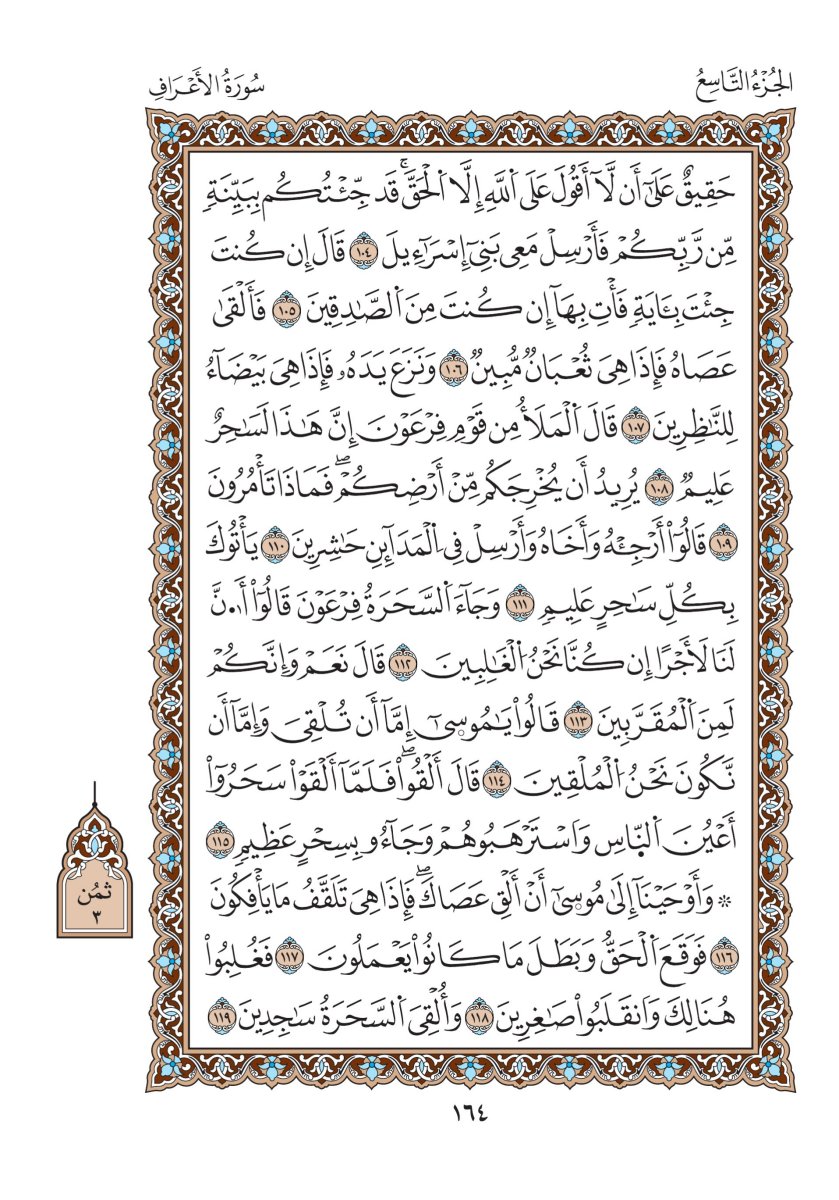 الجُزْءُ التَّاسِعُ
سُورَةُ الأَعْرَافِ
حَقِيقٌ عَلَىٰٓ أَن لَّآ أَقُولَ عَلَى ٱللَّهِ إِلَّا ٱلْحَقَّۚ قَد جِّئْتُكُم بِبَيِّنَةٖ
مِّن رَّبِّكُمْ فَأَرْسِلْ مَعِى بَنِىٓ إِسْرَـٰٓءِيلَ ١٠٤ قَالَ إِن كُنتَ
جِئْتَ بِـَٔايَةٖ فَأْتِ بِهَآ إِن كُنتَ مِنَ ٱلصَّـٰدِقِينَ ١٠٥ فَأَلْقَىٰ
عَصَاهُ فَإِذَا هِىَ ثُعْبَانٌ مُّبِينٌ ١٠٦ وَنَزَعَ يَدَهُۥ فَإِذَا هِىَ بَيْضَآءُ
لِلنَّـٰظِرِينَ ١٠٧ قَالَ ٱلْمَلَأُ مِن قَوْمِ فِرْعَوْنَ إِنَّ هَـٰذَا لَسَـٰحِرٌ
عَلِيمٌ ١٠٨ يُرِيدُ أَن يُخْرِجَكُم مِّنْ أَرْضِكُمْۖ فَمَاذَا تَأْمُرُونَ
١٠٩ قَالُوٓا۟ أَرْجِئْهُ وَأَخَاهُ وَأَرْسِلْ فِى ٱلْمَدَآئِنِ حَـٰشِرِينَ ١١٠ يَأْتُوكَ
بِكُلِّ سَـٰحِرٍ عَلِيمٖ ١١١ وَجَآءَ ٱلسَّحَرَةُ فِرْعَوْنَ قَالُوٓا۟ أَ۟نَّ
لَنَا لَأَجْرًا إِن كُنَّا نَحْنُ ٱلْغَـٰلِبِينَ ١١٢ قَالَ نَعَمْ وَإِنَّكُمْ
لَمِنَ ٱلْمُقَرَّبِينَ ١١٣ قَالُوا۟ يَـٰمُوسِىٓ إِمَّآ أَن تُلْقِىَ وَإِمَّآ أَن
نَّكُونَ نَحْنُ ٱلْمُلْقِينَ ١١٤ قَالَ أَلْقُوا۟ۖ فَلَمَّآ أَلْقَوْا۟ سَحَرُوٓا۟
أَعْيُنَ ٱلنَّاسِ وَٱسْتَرْهَبُوهُمْ وَجَآءُو بِسِحْرٍ عَظِيمٖ ١١٥
۞ وَأَوْحَيْنَآ إِلَىٰ مُوسِىٓ أَنْ أَلْقِ عَصَاكَۖ فَإِذَا هِىَ تَلَقَّفُ مَا يَأْفِكُونَ
١١٦ فَوَقَعَ ٱلْحَقُّ وَبَطَلَ مَا كَانُوا۟ يَعْمَلُونَ ١١٧ فَغُلِبُوا۟
هُنَالِكَ وَٱنقَلَبُوا۟ صَـٰغِرِينَ ١١٨ وَأُلْقِىَ ٱلسَّحَرَةُ سَـٰجِدِينَ ١١٩
ثمُن
٣
١٦٤